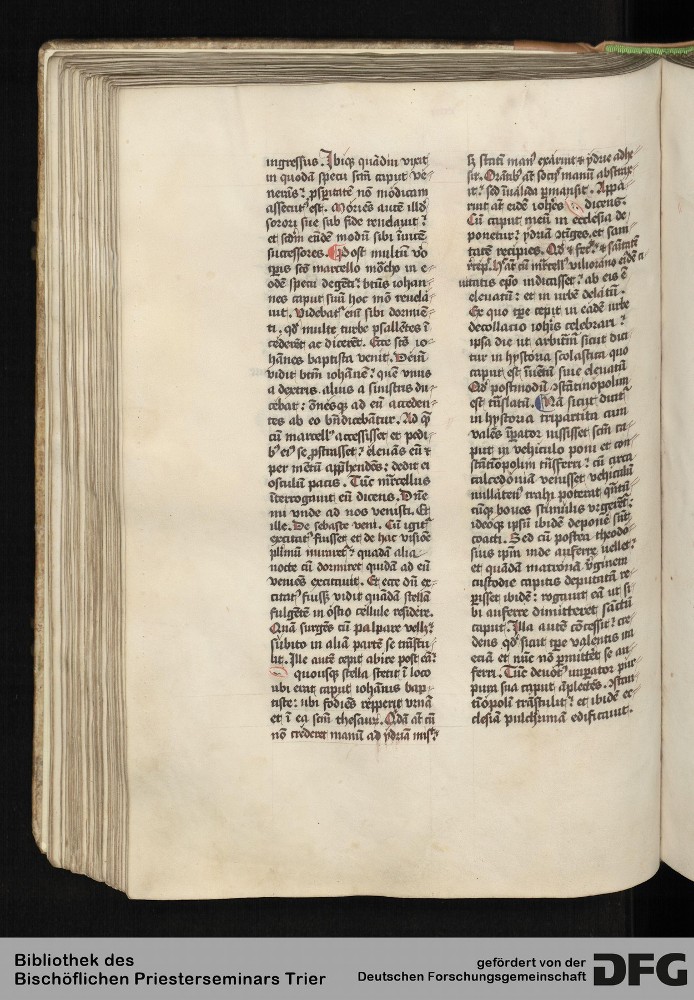 ingressus. Ibiq; quādiu vixit
in quodā specu scm̄ caput ve⸗
nerās? ꝓsꝑitatē nō modicam
assecut9 est. Moriēs autē illd̄
sorori sue sub fide reuelauit?
et scd̄m eūdē modū sibi īuicē
successores. Post multū vo
tꝑis sc̄s marcello mōcho in e⸗
odē specu degēti? bt̄us iohan⸗
nes caput suū hoc mō reuela⸗
uit. Videbat2 eni sibi dormiē⸗
ti, qd̄ multe turbe psallētes ī
cederēt ac dicerēt. Ecce sc̄s io⸗
hānes baptista venit. Dein̄
vidit btm̄ iohānē? quē vnus
a dextris. alius a sinistris du⸗
cebat: ōnesq; ad eū acceden⸗
tes ab eo bn̄dicebātur. Ad q̄
cū marcell9 accessisset et pedi⸗
b9 ei9 se ꝓstrauisset? eleuās eū &
per mētū app̄hendēs: dedit ei
osculū pacis. Tūc m̄rcellus
īterrogauit eū dicens. Dn̄e
mi vnde ad nos venisti. Et
ille. De sebaste veni. Cū igit2
excitat9 fuisset et de hac visiōe
plīmū miraret2? quadā alia
nocte cū dormiret quidā ad eū
veniēs excitauit. Et ecce dū ex⸗
citat9 fuiss; vidit quādā stellā
fulgētē in ostio cellule residere.
Quā surgēs cū palpare vell;?
subito in aliā partē se trāstu⸗
lit. Ille autē cepit abire post eā?
quousq; stella stetit ī loco
ubi erat caput iohānis bap⸗
tiste: ubi fodiēs repperit vrnā
et ī ea scm̄ thesaur̄. Qdā at cū
nō crederet manū ad ydriā mis̄?
s; statī man9 exaruit & ydrie adhe⸗
sit. Orātib9 at̄ socijs manū abstrax⸗
it? sed īualida ꝑmansit. Appa⸗
ruit at̄ eidē ioh̄es dicens.
Cū caput meū in ecclesia de
ponetur? ydriā ɔtiges, et sani
tatē recipies. Qd̄ & fec̄? & sāitatē
recep̄. H9 at̄ cū m̄rcell9 viliorāno eidē ci
uitatis epō indicasset? ab eis ē
eleuatū: et in urbē delatū.
Ex quo tꝑe cepit in eadē urbe
decollacio ioh̄is celebrari?
ipsa die ut arbitrī sicut dici
tur in hystoria scolastica quo
caput est īuētū siue eleuatū
Qd̄ postmodū ɔstātinopolim
est trāslatū. Nā sicut dicit2
in hystoria tripartita cum
valēs īꝑator iussisset scm̄ ca⸗
put in vehiculo poni et con⸗
stātiopolim trāsferri? cū circa
calcedoniā venisset vehiculū
nullaten9 trahi poterat q̄ntū
cūq; boues stimulis vrgerēt2:
ideoq; ipsū ibidē deponē sūt
coacti. Sed cū postea theodo⸗
sius ip̄m inde auferre vellet?
et quādā matronā v̄ginem
custodie capitis deputatā re⸗
ꝑisset ibidē: rogauit eā ut si⸗
bi auferre dimitteret sāctū
caput. Illa autē cōcessit? cre⸗
dens qd̄ sicut tꝑe valentis ita
eciā et nūc nō ꝑmittet se au⸗
ferri. Tūc deuot9 īꝑator pur⸗
pura sua caput āplectēs. ɔstan⸗
tiōpoli trāstulit? et ibidē ec⸗
clesiā pulchrimā edificauit.
Bibliothek des
Bischöflichen Priesterseminars Trier
gefördert von der
Deutschen Forschungsgemeinschaft
DFG